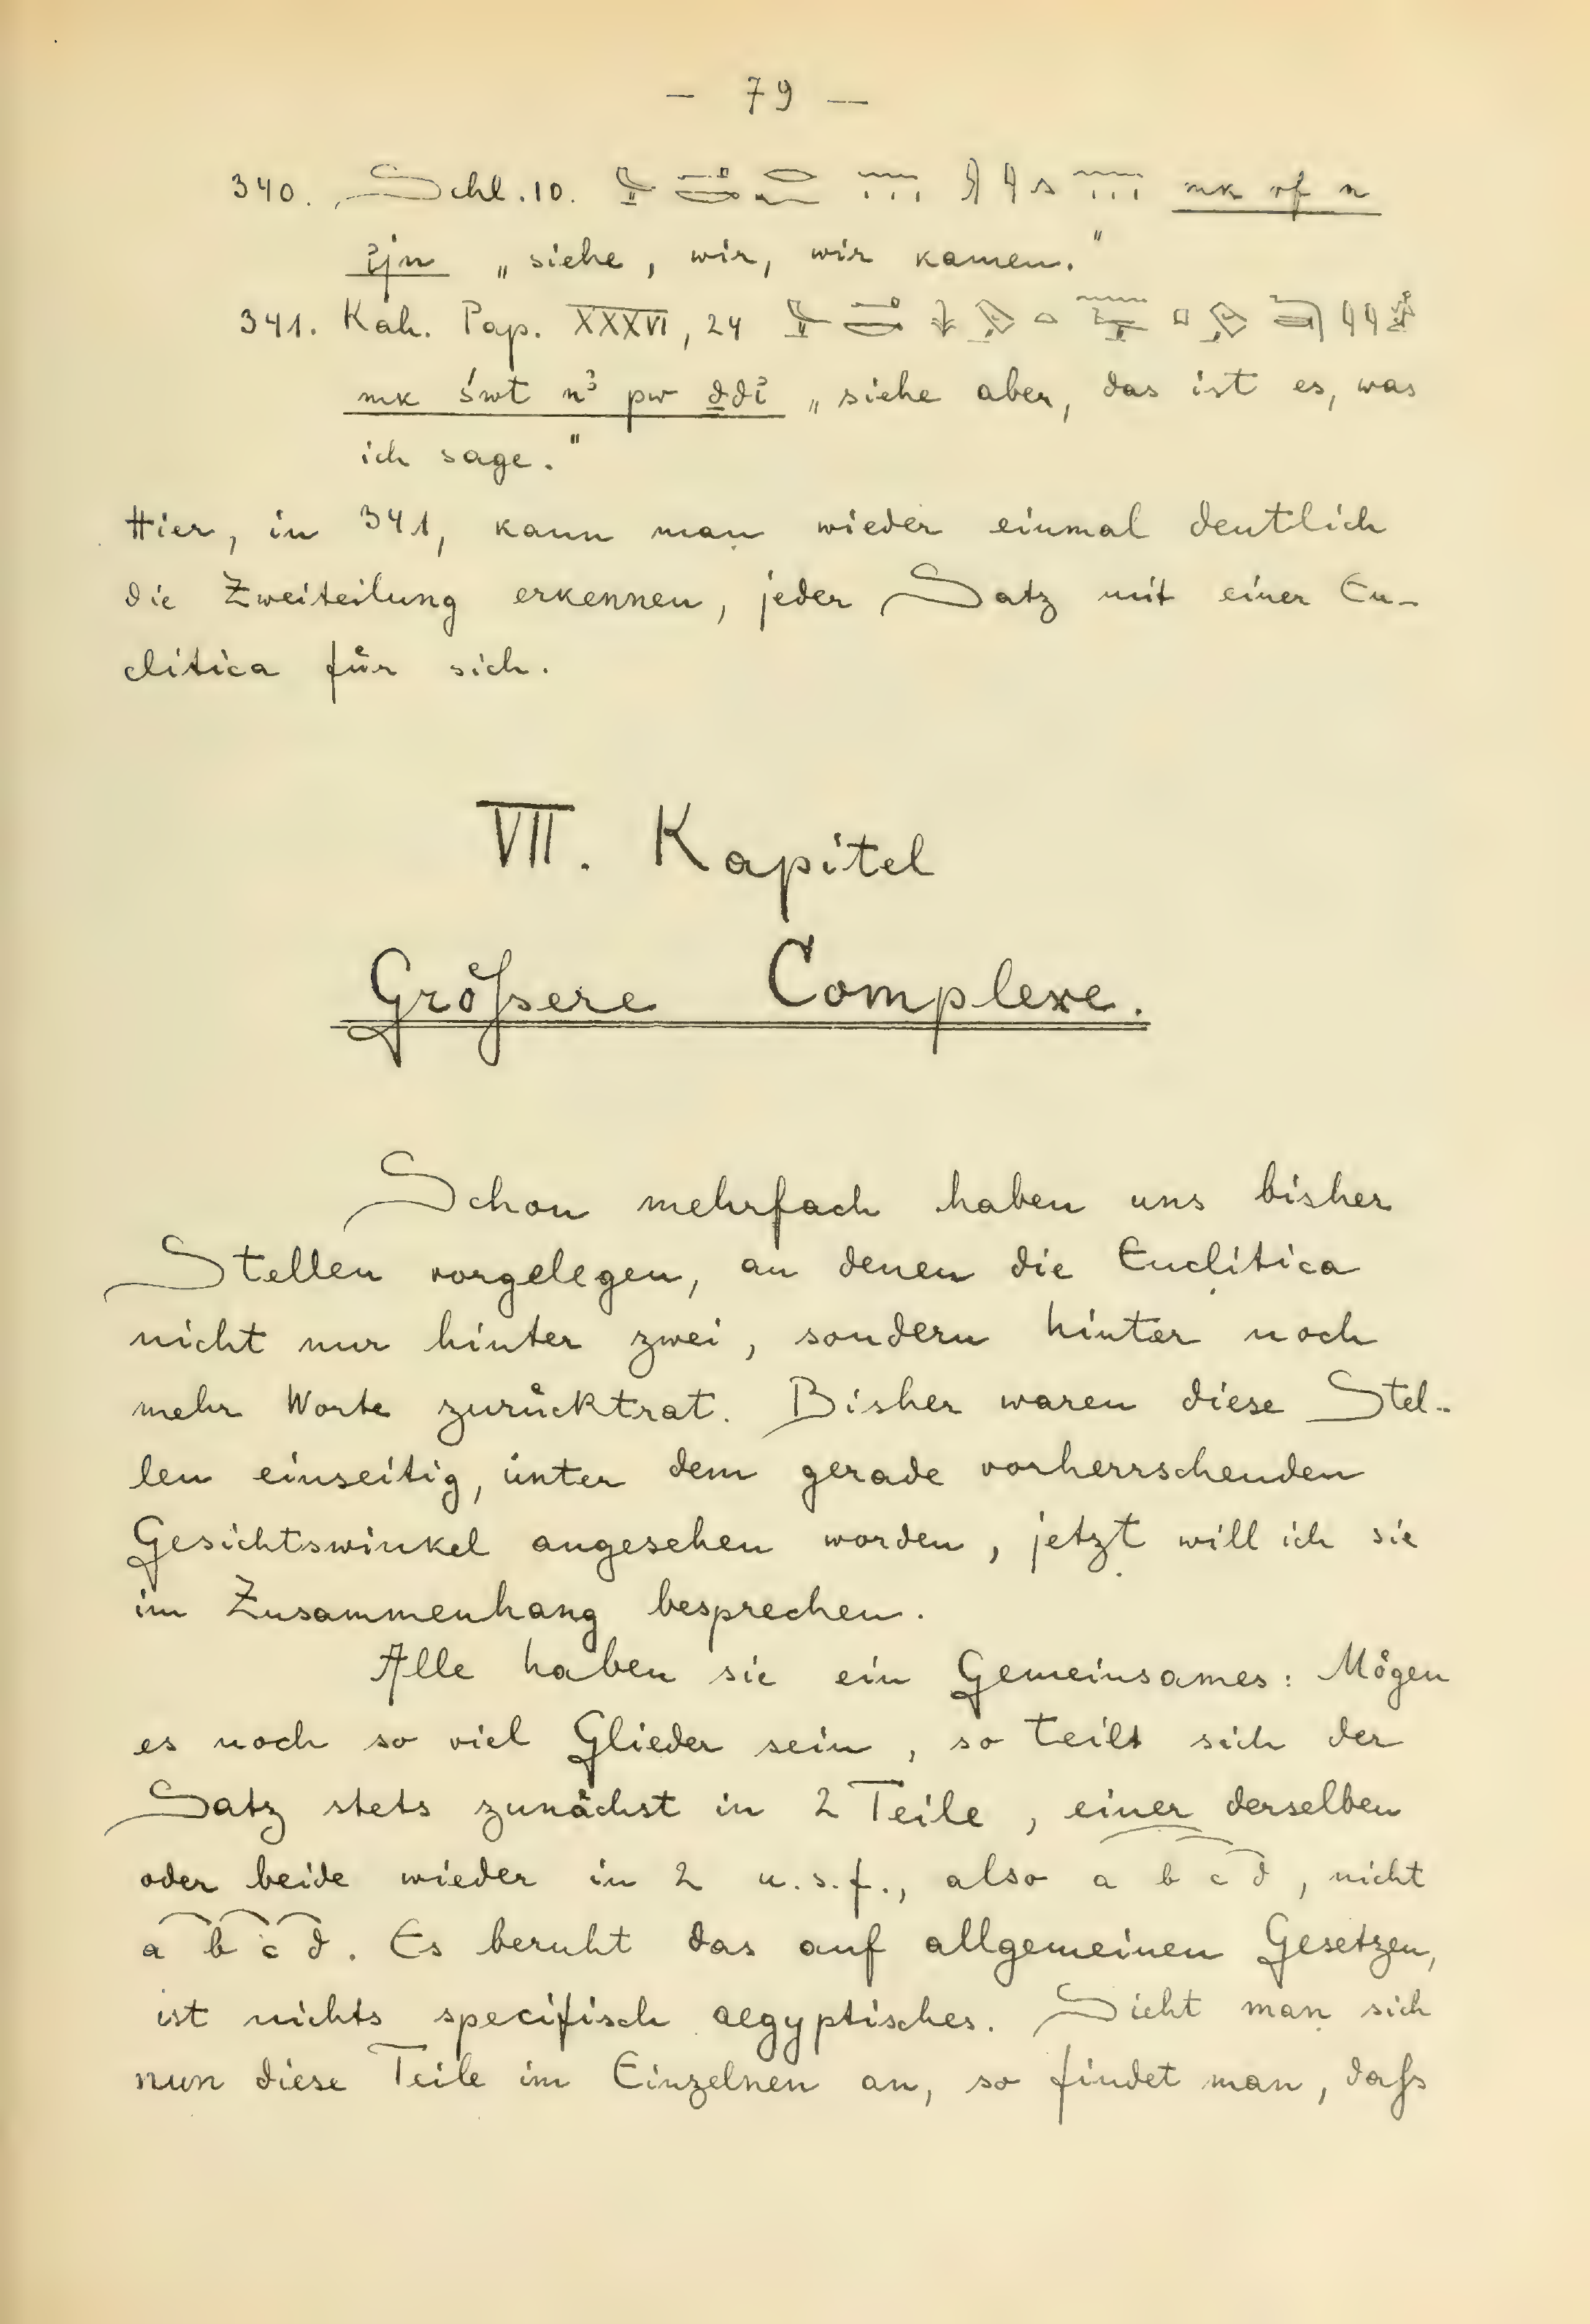 — 79 —
340. Schl. 10. mk rf n
ꞽjn „siehe, wir, wir kamen."
341. Kah. Pap. XXXVI, 24
mk św̓t nꜣ pw ḏdꞽ „siehe aber, das ist es, was
ich sage."
Hier, in 341, kann man wieder einmal deutlich
die Zweiteilung erkennen, jeder Satz mit einer En-
clitica für sich.
VII. Kapitel
Größere Complexe.
Schon mehrfach haben uns bisher
Stellen vorgelegen, an denen die Enclitica
nicht nur hinter zwei, sondern hinter noch
mehr Worte zurücktrat. Bisher waren diese Stel-
len einseitig, unter dem gerade vorherrschenden
Gesichtswinkel angesehen worden, jetzt will ich sie
im Zusammenhang besprechen.
Alle haben sie ein Gemeinsames: Mögen
es noch so viel Glieder sein, so teilt sich der
Satz stets zunächst in 2 Teile, einer derselben
oder beide wieder in 2 u.s.f., also a b c d, nicht
a b c d. Es beruht das auf allgemeinen Gesetzen,
ist nichts specifisch aegyptisches. Sieht man sich
nun diese Teile im Einzelnen an, so findet man, daß